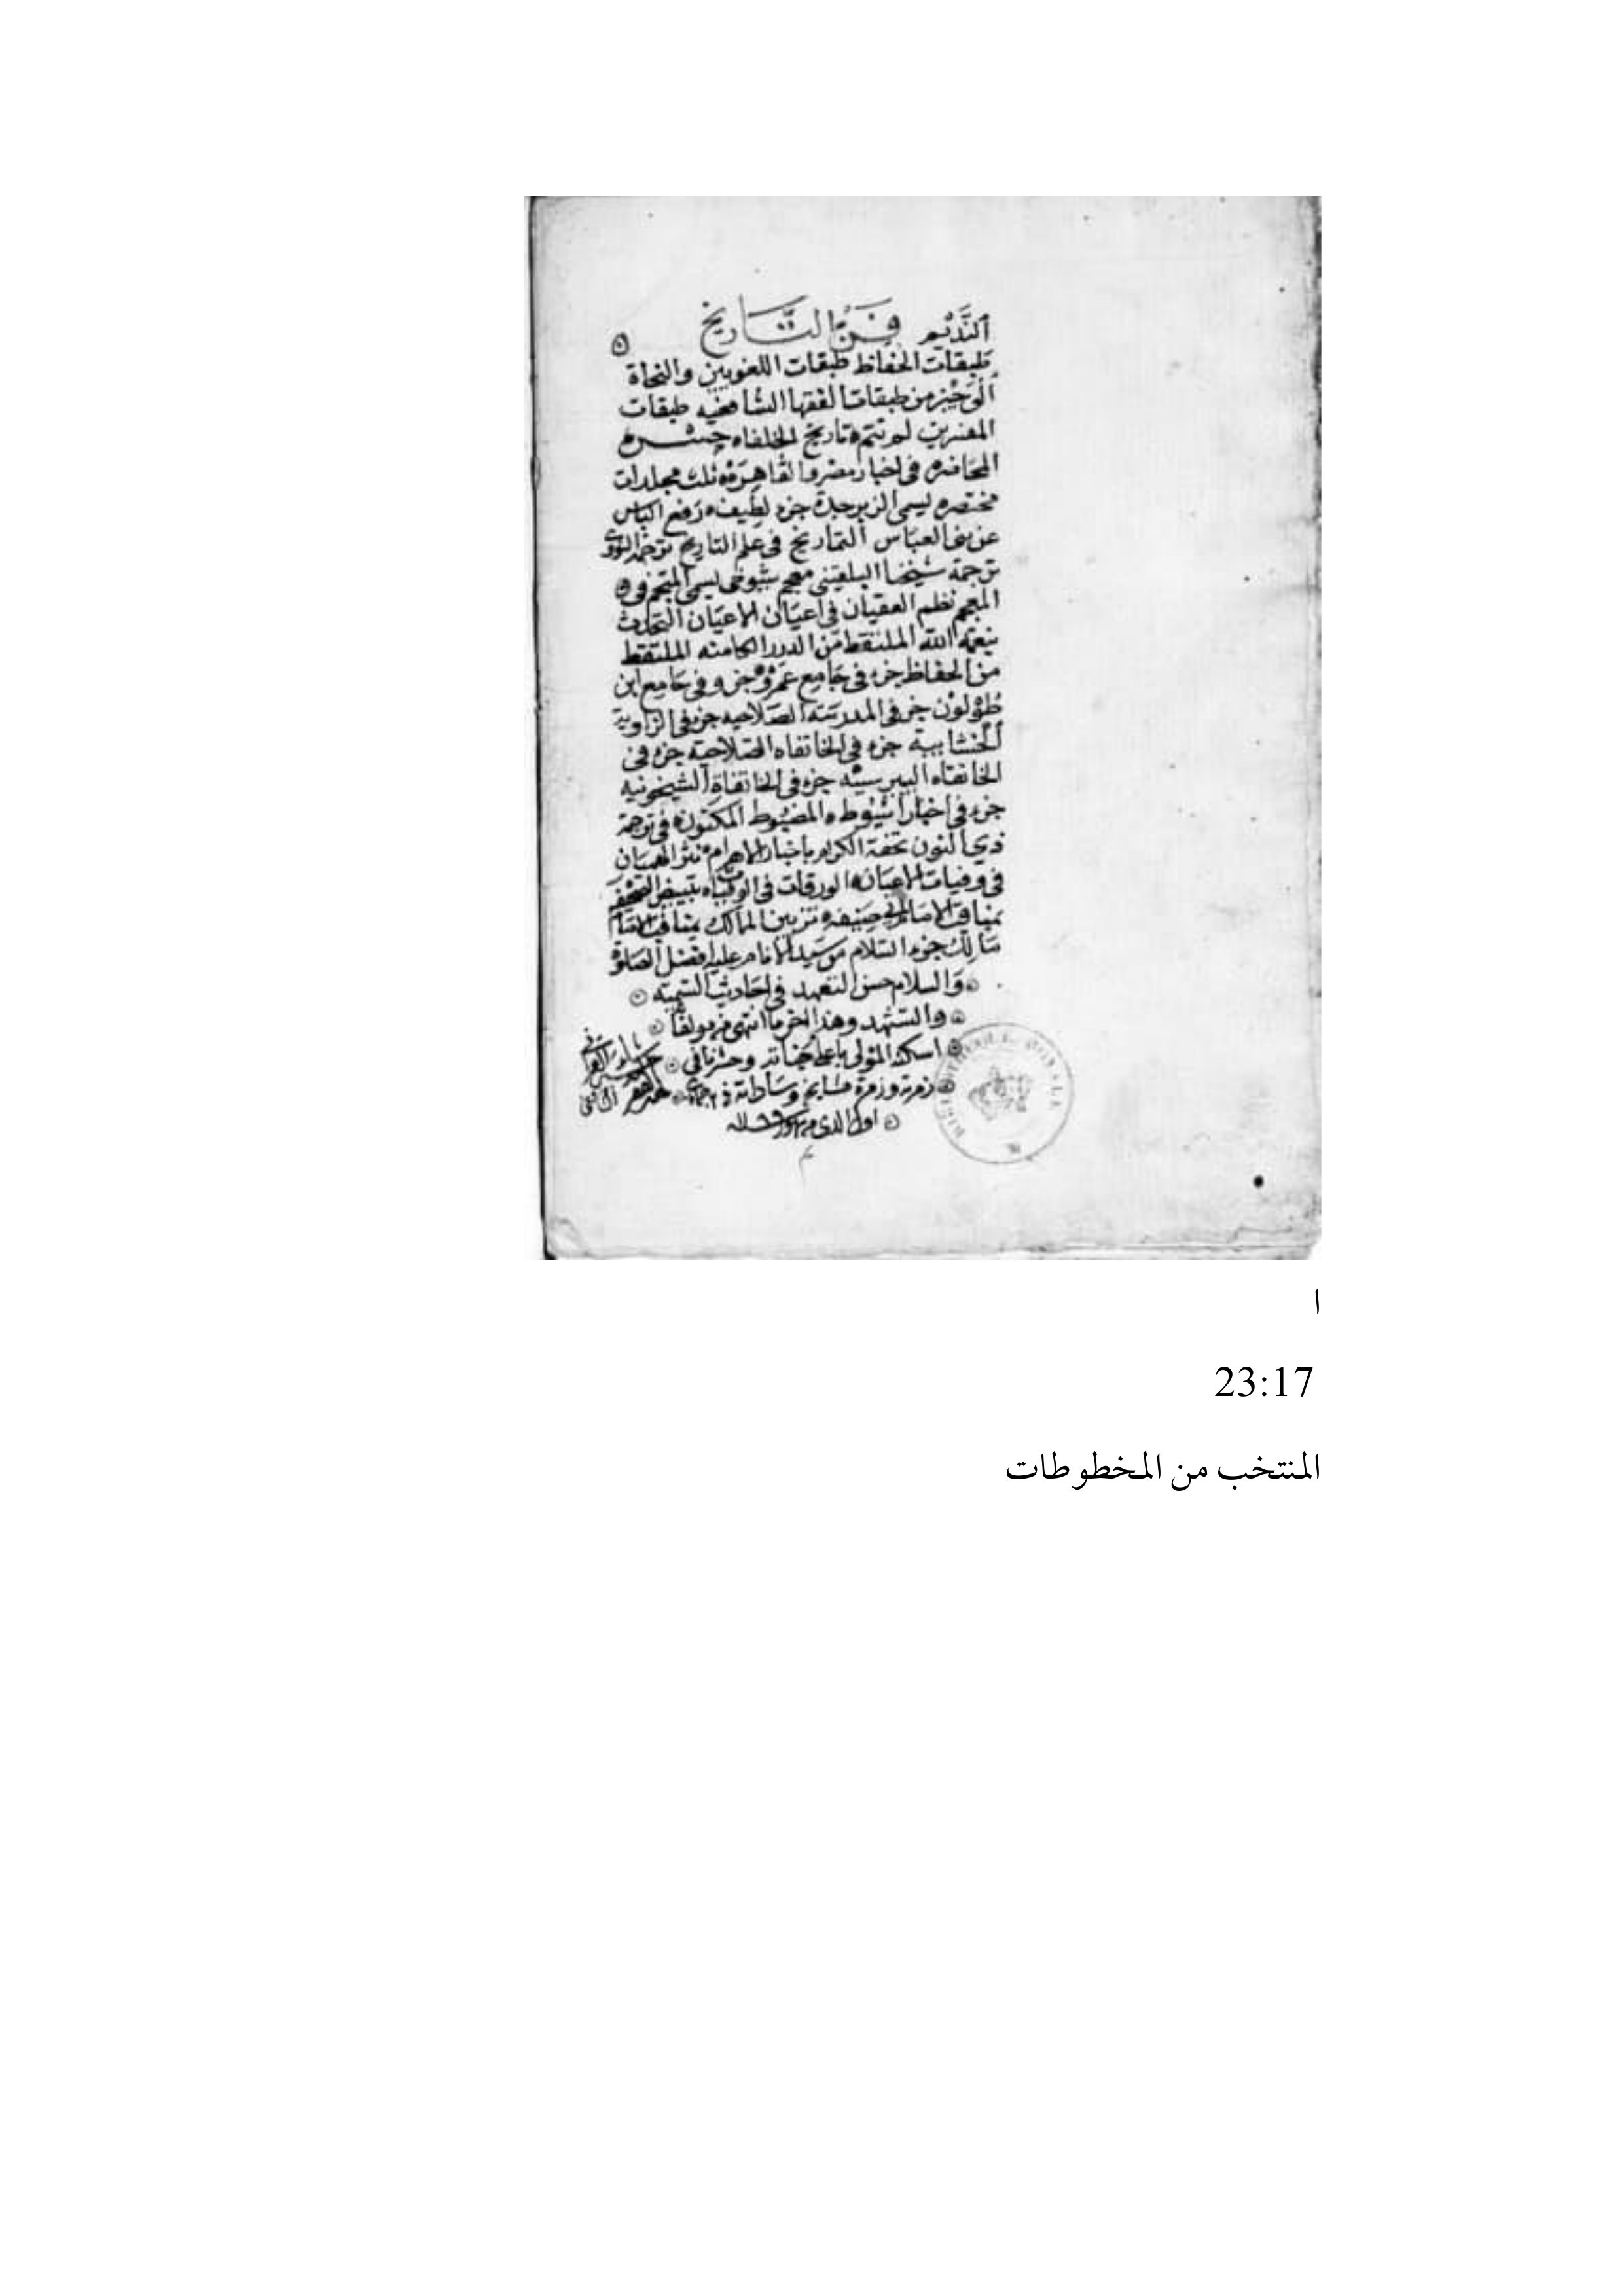 النديم فن التاريخ
طبقات الحفاظ طبقات اللغويين والنحاة
الوجيز من طبقات الفقها الشافعيه طبقات
المفسرين لم تتم تاريخ الخلفاء حسن
المحاضره في اخبار مصر والقاهرة ثلث مجلدات
مختصره يسمى الزبرجدة جزء لطيف رفع الباس
عن بني العباس الشماريخ في علم التاريخ ترجمة النووي
ترجمة شيخنا البلقيني معجم شيوخي يسمى المنجم في
المعجم نظم العقيان في اعيان الاعيان التحدث
بنعمة الله الملتقط من الدرر الكامنه الملتقط
من الحفاظ جزء في جامع عمرو جزء في جامع ابن
طولون جزء في المدرسة الصلاحيه جزء في الزاوية
الخشابية جزء في الخانقاه الصلاحية جزء في
الخانقاه البيبرسية جزء في الخانقاة الشيخونيه
جزء في اخبار اسيوط المضبوط المكنون في ترجمة
ذي النون تحفة الكرام باخبار الاهرام نثر الهميان
في وفيات الاعيان الورقات في الوفيات تبييض الصحيفه
بمناقب الامام ابي حنيفه تزيين الممالك بمناقب الامام
مالك جزء السلام من سيد الانام عليه افضل الصلوة
والسلام حسن التعهد في احاديث التسمية
والتشهد وهذا اخر ما انتهى من مولفاته
اسكنه المولى باعلا جناته وحشرنا في
زمرته وزمرة مشايخه وساداته في
ا
23:17
المنتخب من المخطوطات